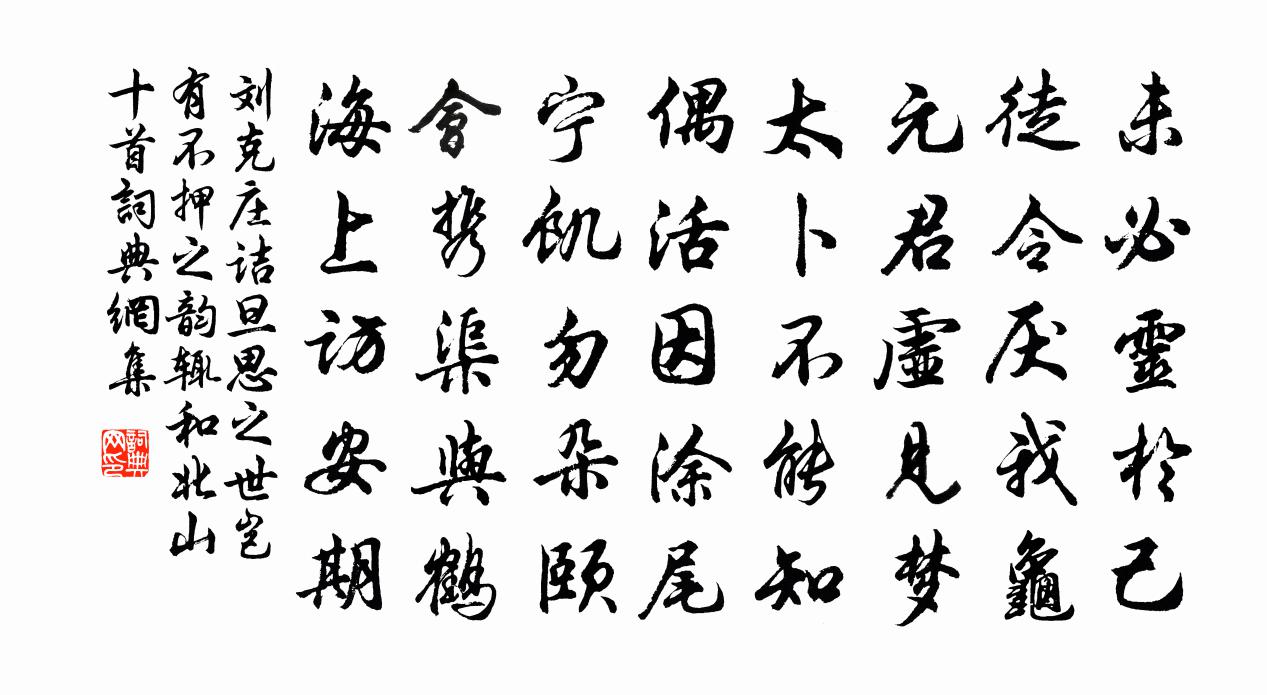 未必靈於己
徒令厌我龜
元君虛見梦
太卜不能知
偶活因涂尾
宁飢勿朵頤
會携渠與鶴
海上访安期
刘克庄诘旦思之世岂
有不押之韵辄和北山
十首詞典網集
詞典网印